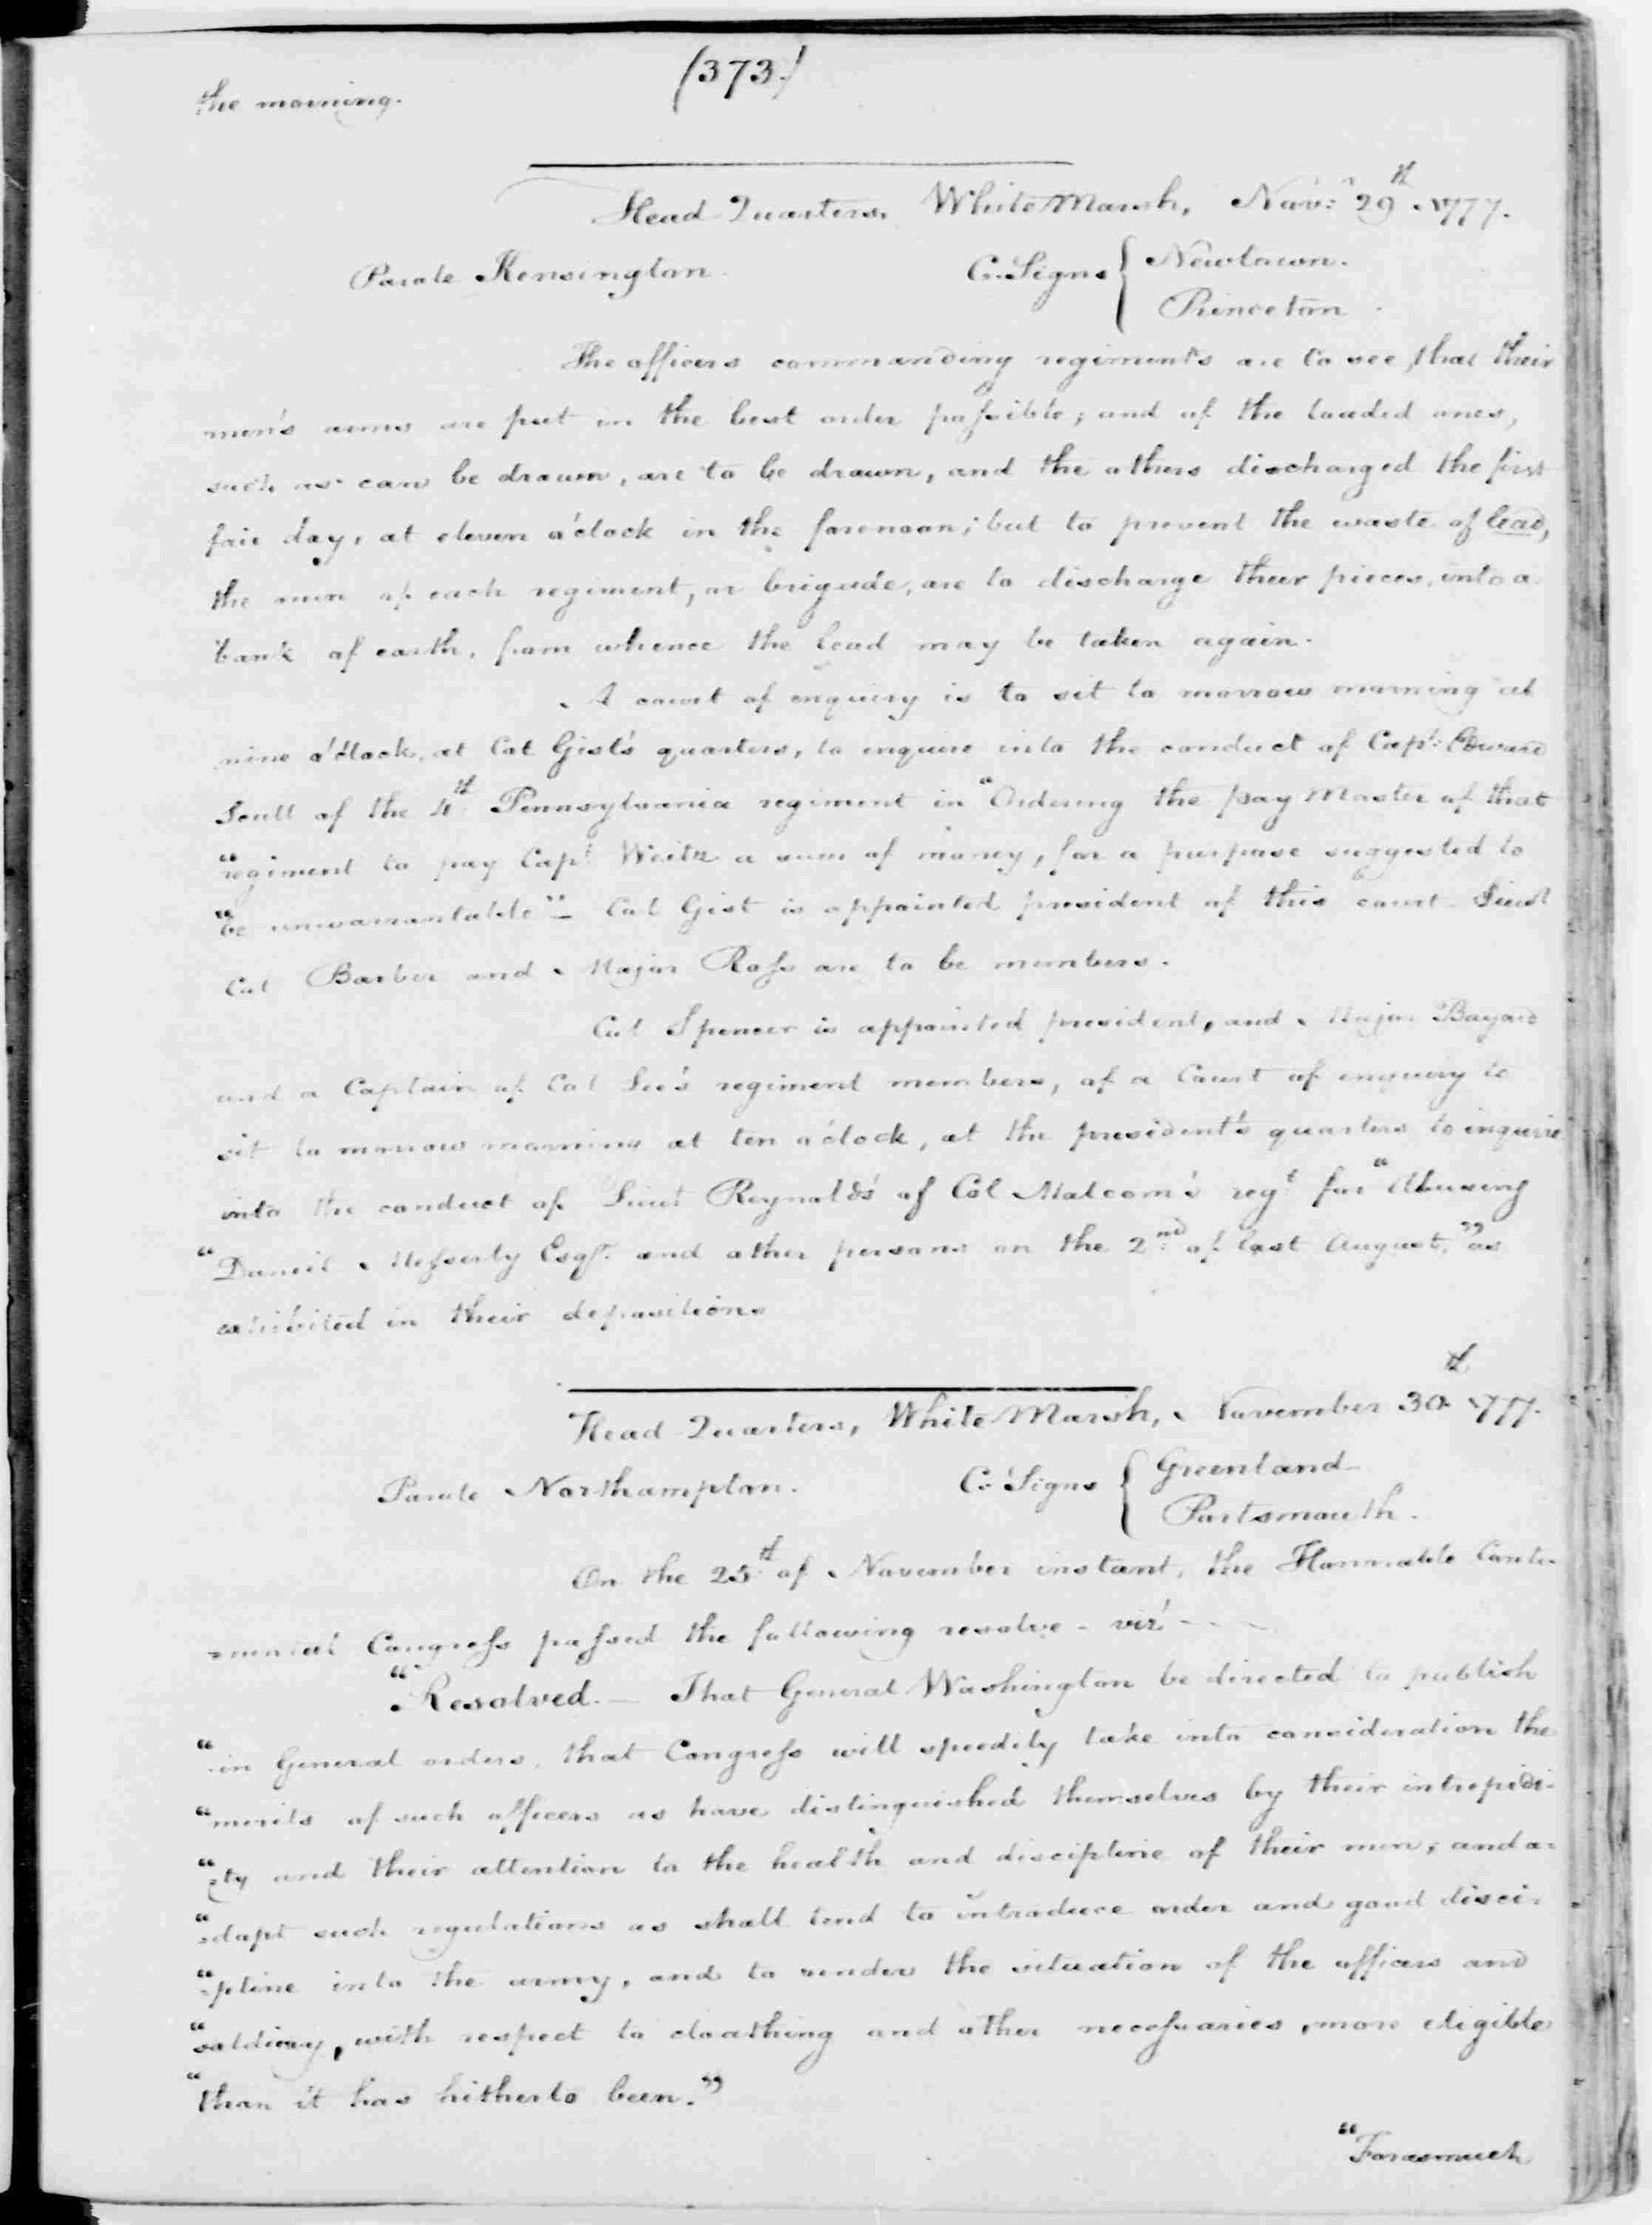 (373.)
the morning.
Head-Quarters, White Marsh, Nov: 29th 1777.
Parole Kensington.
C. Signs { Newtown.
Princeton.
The officers commanding regiments are to see, that their
men's arms are put in the best order possible; and of the loaded ones,
such as can be drawn, are to be drawn, and the others discharged the first
fair day, at eleven o'clock in the forenoon; but to prevent the waste of lead,
the men of each regiment, or brigade, are to discharge their pieces, into a
bank of earth, from whence the lead may be taken again.
A court of enquiry is to sit to morrow morning at
nine o'clock, at Col Gist's quarters, to enquire into the conduct of Capt: Edward
Scull of the 4th Pennsylvania regiment in "Ordering the pay Master of that
"regiment to pay Capt Weitz a sum of money, for a purpose suggested to
"be unwarrantable"- Col Gist is appointed president of this court- Lieut
Col Barber and Major Ross are to be members.
Col Spencer is appointed president, and Major Bayard
and a Captain of Col Lee's regiment members, of a Court of enquiry to
sit to morrow morning at ten o'clock, at the president's quarters to enquire
into the conduct of Lieut Reynolds of Col Malcom's regt for "Abusing
"Daniel Esqr. and other persons on the 2nd of last August," as
exhibited in their depositions
Head-Quarters, White Marsh, November 30th 1777.
Parole Northampton.
C. Signs { Greenland
Portsmouth.
On the 25th of November instant, the Honorable Conti-
=nental Congress passed the following resolve - viz' -
"Resolved.- That General Washington be directed to publish
"in General orders, that Congress will speedily take into consideration the
"merits of such officers as have distinguished themselves by their intrepidi-
"=ty and their attention to the health and discipline of their men; and a=
"=dopt such regulations as shall tend to introduce order and good disci-
"=pline into the army, and to render the situation of the officers and
"soldiery, with respect to cloathing and other necessaries, more eligible
"than it has hitherto been."
"Forasmuch